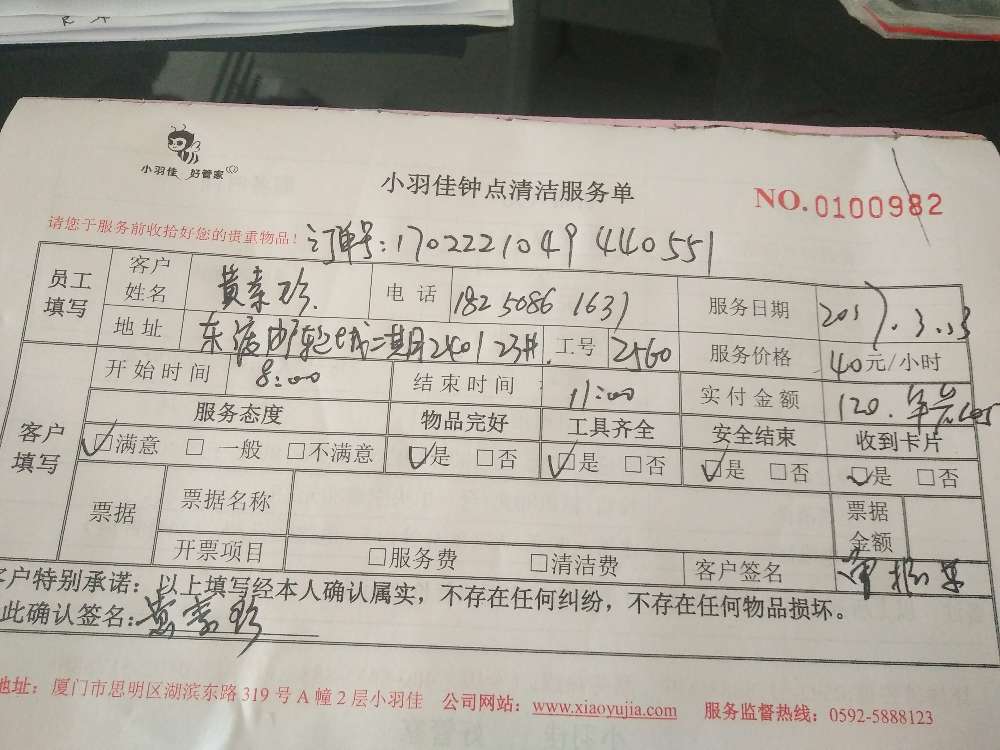 小羽佳 好管家
小羽佳钟点清洁服务单
NO.0100982
请您于服务前收拾好您的贵重物品! 订单号:1702221049440551
员工填写 客户姓名 黄素珍 电话 182 5086 1631 服务日期 2017.3.
地址 二期 240123# 工号 2560 服务价格 40元/小时
客户填写 开始时间 8:00 结束时间 11:00 实付金额 120.
服务态度 物品完好 工具齐全 安全结束 收到卡片
☑满意 □一般 □不满意 ☑是 □否 ☑是 □否 ☑是 □否 ☑是 □否
票据 票据名称 票据金额
开票项目 □服务费 □清洁费 客户签名
客户特别承诺:以上填写经本人确认属实,不存在任何纠纷,不存在任何物品损坏。
此确认签名:黄素珍
地址:厦门市思明区湖滨东路319号A幢2层小羽佳 公司网站:www.xiaoyujia.com 服务监督热线:0592-5888123